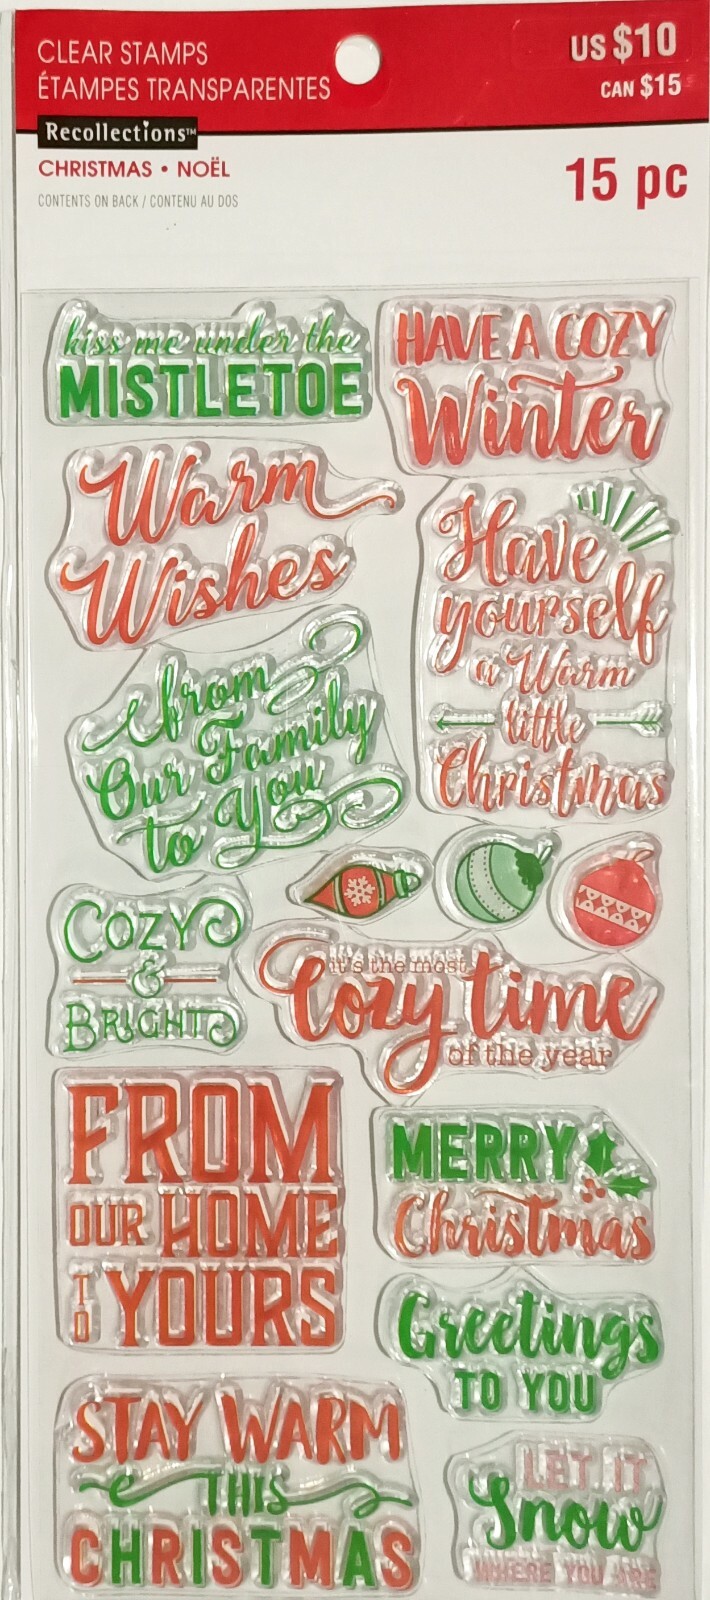 CLEAR STAMPS
ÉTAMPES TRANSPARENTES
US $10
CAN $15
Recollections™
CHRISTMAS • NOËL
CONTENTS ON BACK / CONTENU AU DOS
15 pc
kiss me under the
MISTLETOE
HAVE A COZY
Winter
Warm
Wishes
Have
yourself
a Warm
little
Christmas
from
Our Family
to You
COZY
&
BRIGHT
it's the most
Cozy time
of the year
FROM
OUR HOME
TO YOURS
MERRY
Christmas
Greetings
TO YOU
STAY WARM
THIS
CHRISTMAS
LET IT
Snow
WHERE YOU ARE